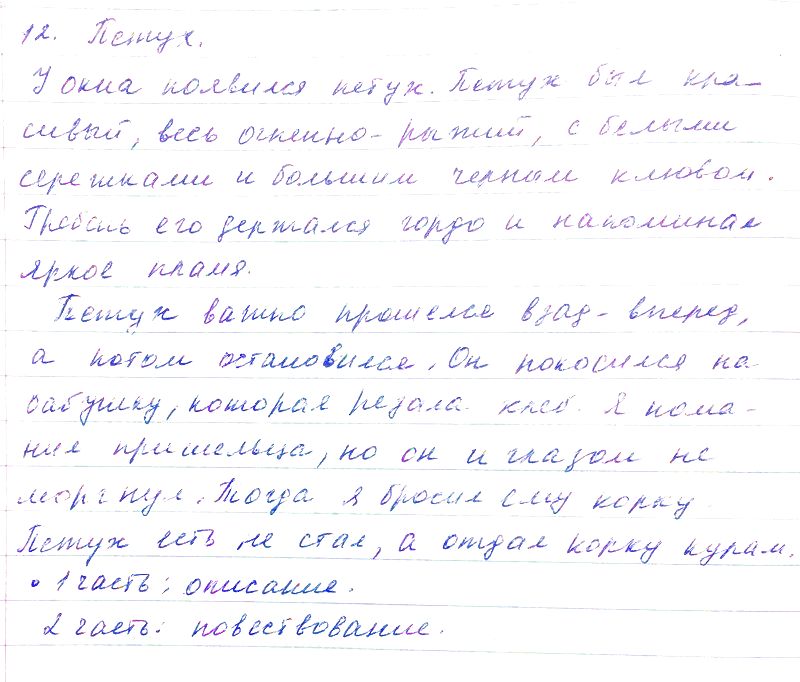 12. Петух.
У окна появился петух. Петух был кра-
сивый, весь огненно-рыжий, с белыми
сережками и большим черным клювом.
Гребень его держался гордо и напоминал
яркое пламя.
Петух важно прошелся взад-вперед,
а потом остановился. Он покосился на
бабушку, которая резала хлеб. Я пома-
нил пришельца, но он и глазом не
моргнул. Тогда я бросил ему корку.
Петух есть не стал, а отдал корку курам.
1 часть: описание.
2 часть: повествование.